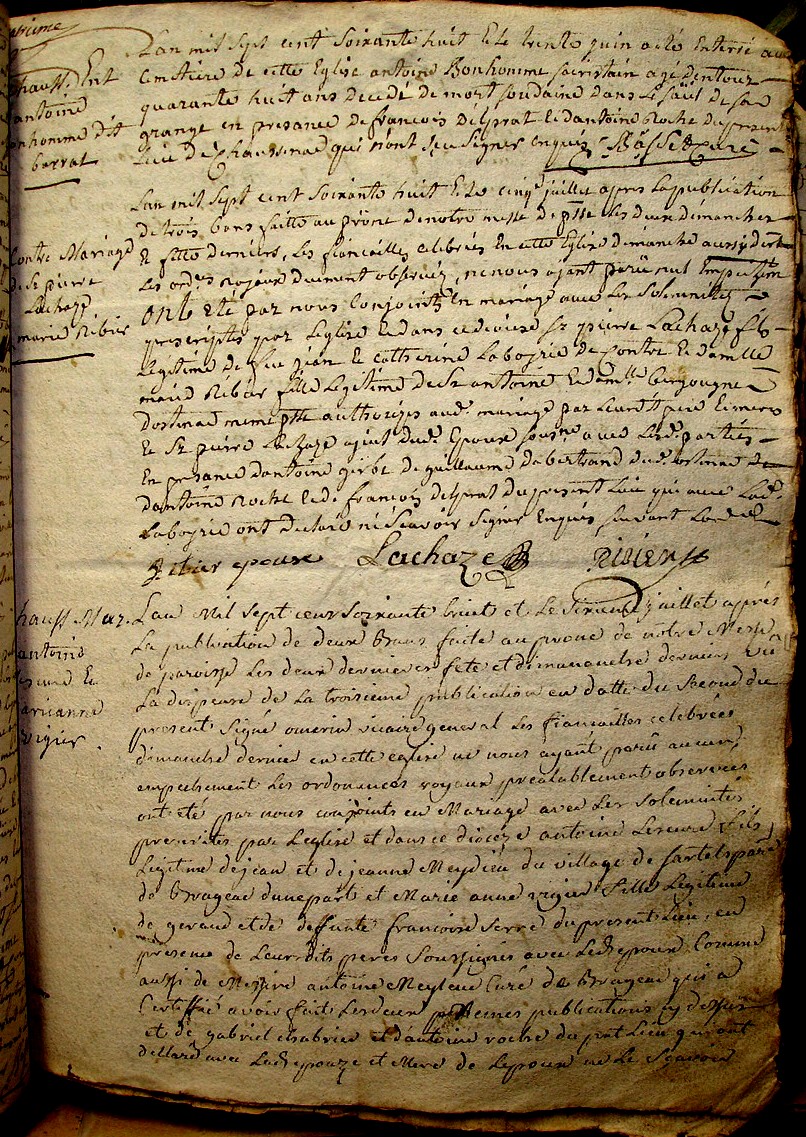 Lan mil sept cent Soixante huit Et le trente juin a eté Enterré au
Cimetiere de cette Eglise antoine Bonhomme sacristain agé dentour
quarante huit ans decedé de mort soudaine dans le de sa
grange en presance de francois delprat et dantoine Roche du present
Lieu de Chaussenac qui n'ont sçu signer enquis
Chauss. Ent
antoine
bonhomme dit
barrat
Lan mil sept cent Soixante huit Et le cinqe juillet apres la publication
de trois bans faitte au prone de notre messe de pssse les deux dimanches
et fette derniers, les fiancailles celebrées En cette Eglise dimanche aussy dert
les ordces royaux duement observées, ne nous ayant parû nul Empechemt
ont eté par nous Conjoints En mariage avec les Solemnittés
prescriptes par leglise et dans ce diocese Sr pierre Lachaze fils
legitime de feu jean et catherine Laborie de Contre et damlle
marie Ribier fille legitime de Sr antoine et damlle
dostenac meme psse authorizes aud. mariage par leur pere et meres
Et Sr pierre Lachaze dud. Epoux avec lesd. parties
En presance dantoine de guillaume dabertrand
dantoine Roche et de francois delprat du present Lieu qui avec lad.
Laborie ont declaré ne scavoir signer Enquis, suivant
Contre Mariage
de Sr pierre
Lachaze
marie Ribier
Ribier epouse Lachaze
Lan Mil sept cens soixante huit et le juillet après
La publication de deux Bans faite au prone de nôtre Messe
de paroisse Les deux dernieres fete et dimanche derniers vû
La dispense de La troisieme publication en datte du second du
present Signé vicaire general Les fiancailles celebrées
dimanche dernier en cette eglise ne nous ayant parû aucun
empechement Les ordonances royaux prealablement observées
ont eté par nous conjoints en Mariage avec Les solemnités
prescrites par Leglise et dans ce diocéze antoine Lescure fils
Légitime de jean et de jeanne Meydieu du village de parse
de Brageac dune part et Marie anne vigier fille Légitime
de geraud et de deffunte francoise Serre du present Lieu, en
présence de Leurs dits peres soussignés avec Led epoux Comme
aussi de Messire antoine Curé de Brageac qui a
Certiffié avoir fait Les deux memes publications cy dessus
et de gabriel chabrier et d'antoine roche du pnt Lieu qui ont
dellaré avec Lade epouze et Mere de Lepoux ne Le Sçavoir
Chauss Mar.
antoine
Lescure Et
marianne
vigier.